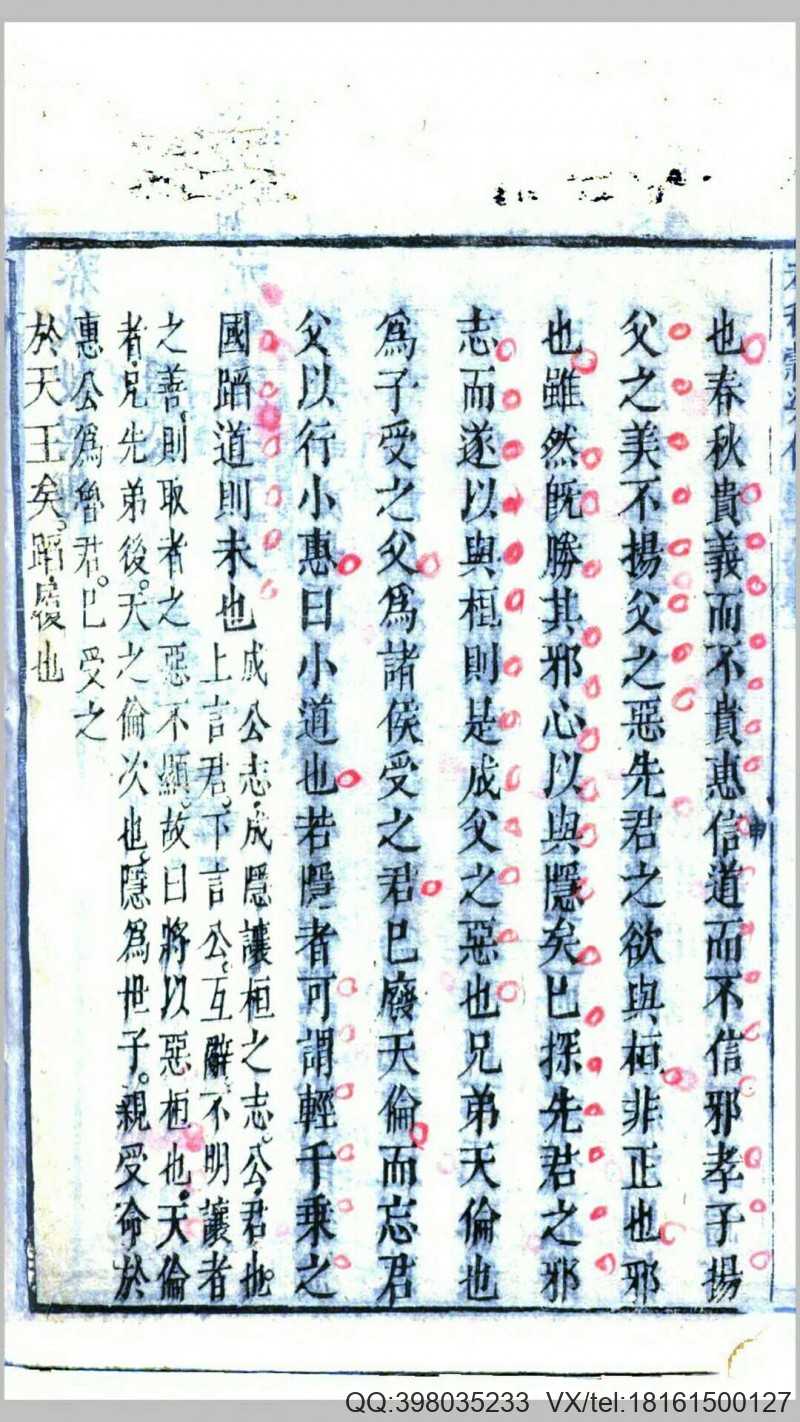 也春秋貴義而不貴惠信道而不信邪孝子揚
父之美不揚父之惡先君之欲與桓非正也邪
也雖然旣勝其邪心以與隱矣已探先君之邪
志而遂以與桓則是成父之惡也兄弟天倫也
爲子受之父爲諸侯受之君已廢天倫而忘君
父以行小惠曰小道也若隱者可謂輕千乘之
國蹈道則未也
成公志成隱讓桓之志公君也
上言君下言公互辭不明讓者
之善則取者之惡不顯故曰將以惡桓也天倫
者兄先弟後天之倫次也隱爲世子親受命於
惠公爲魯君已受之
於天王矣蹈履也
QQ:398035233 VX/tel:18161500127